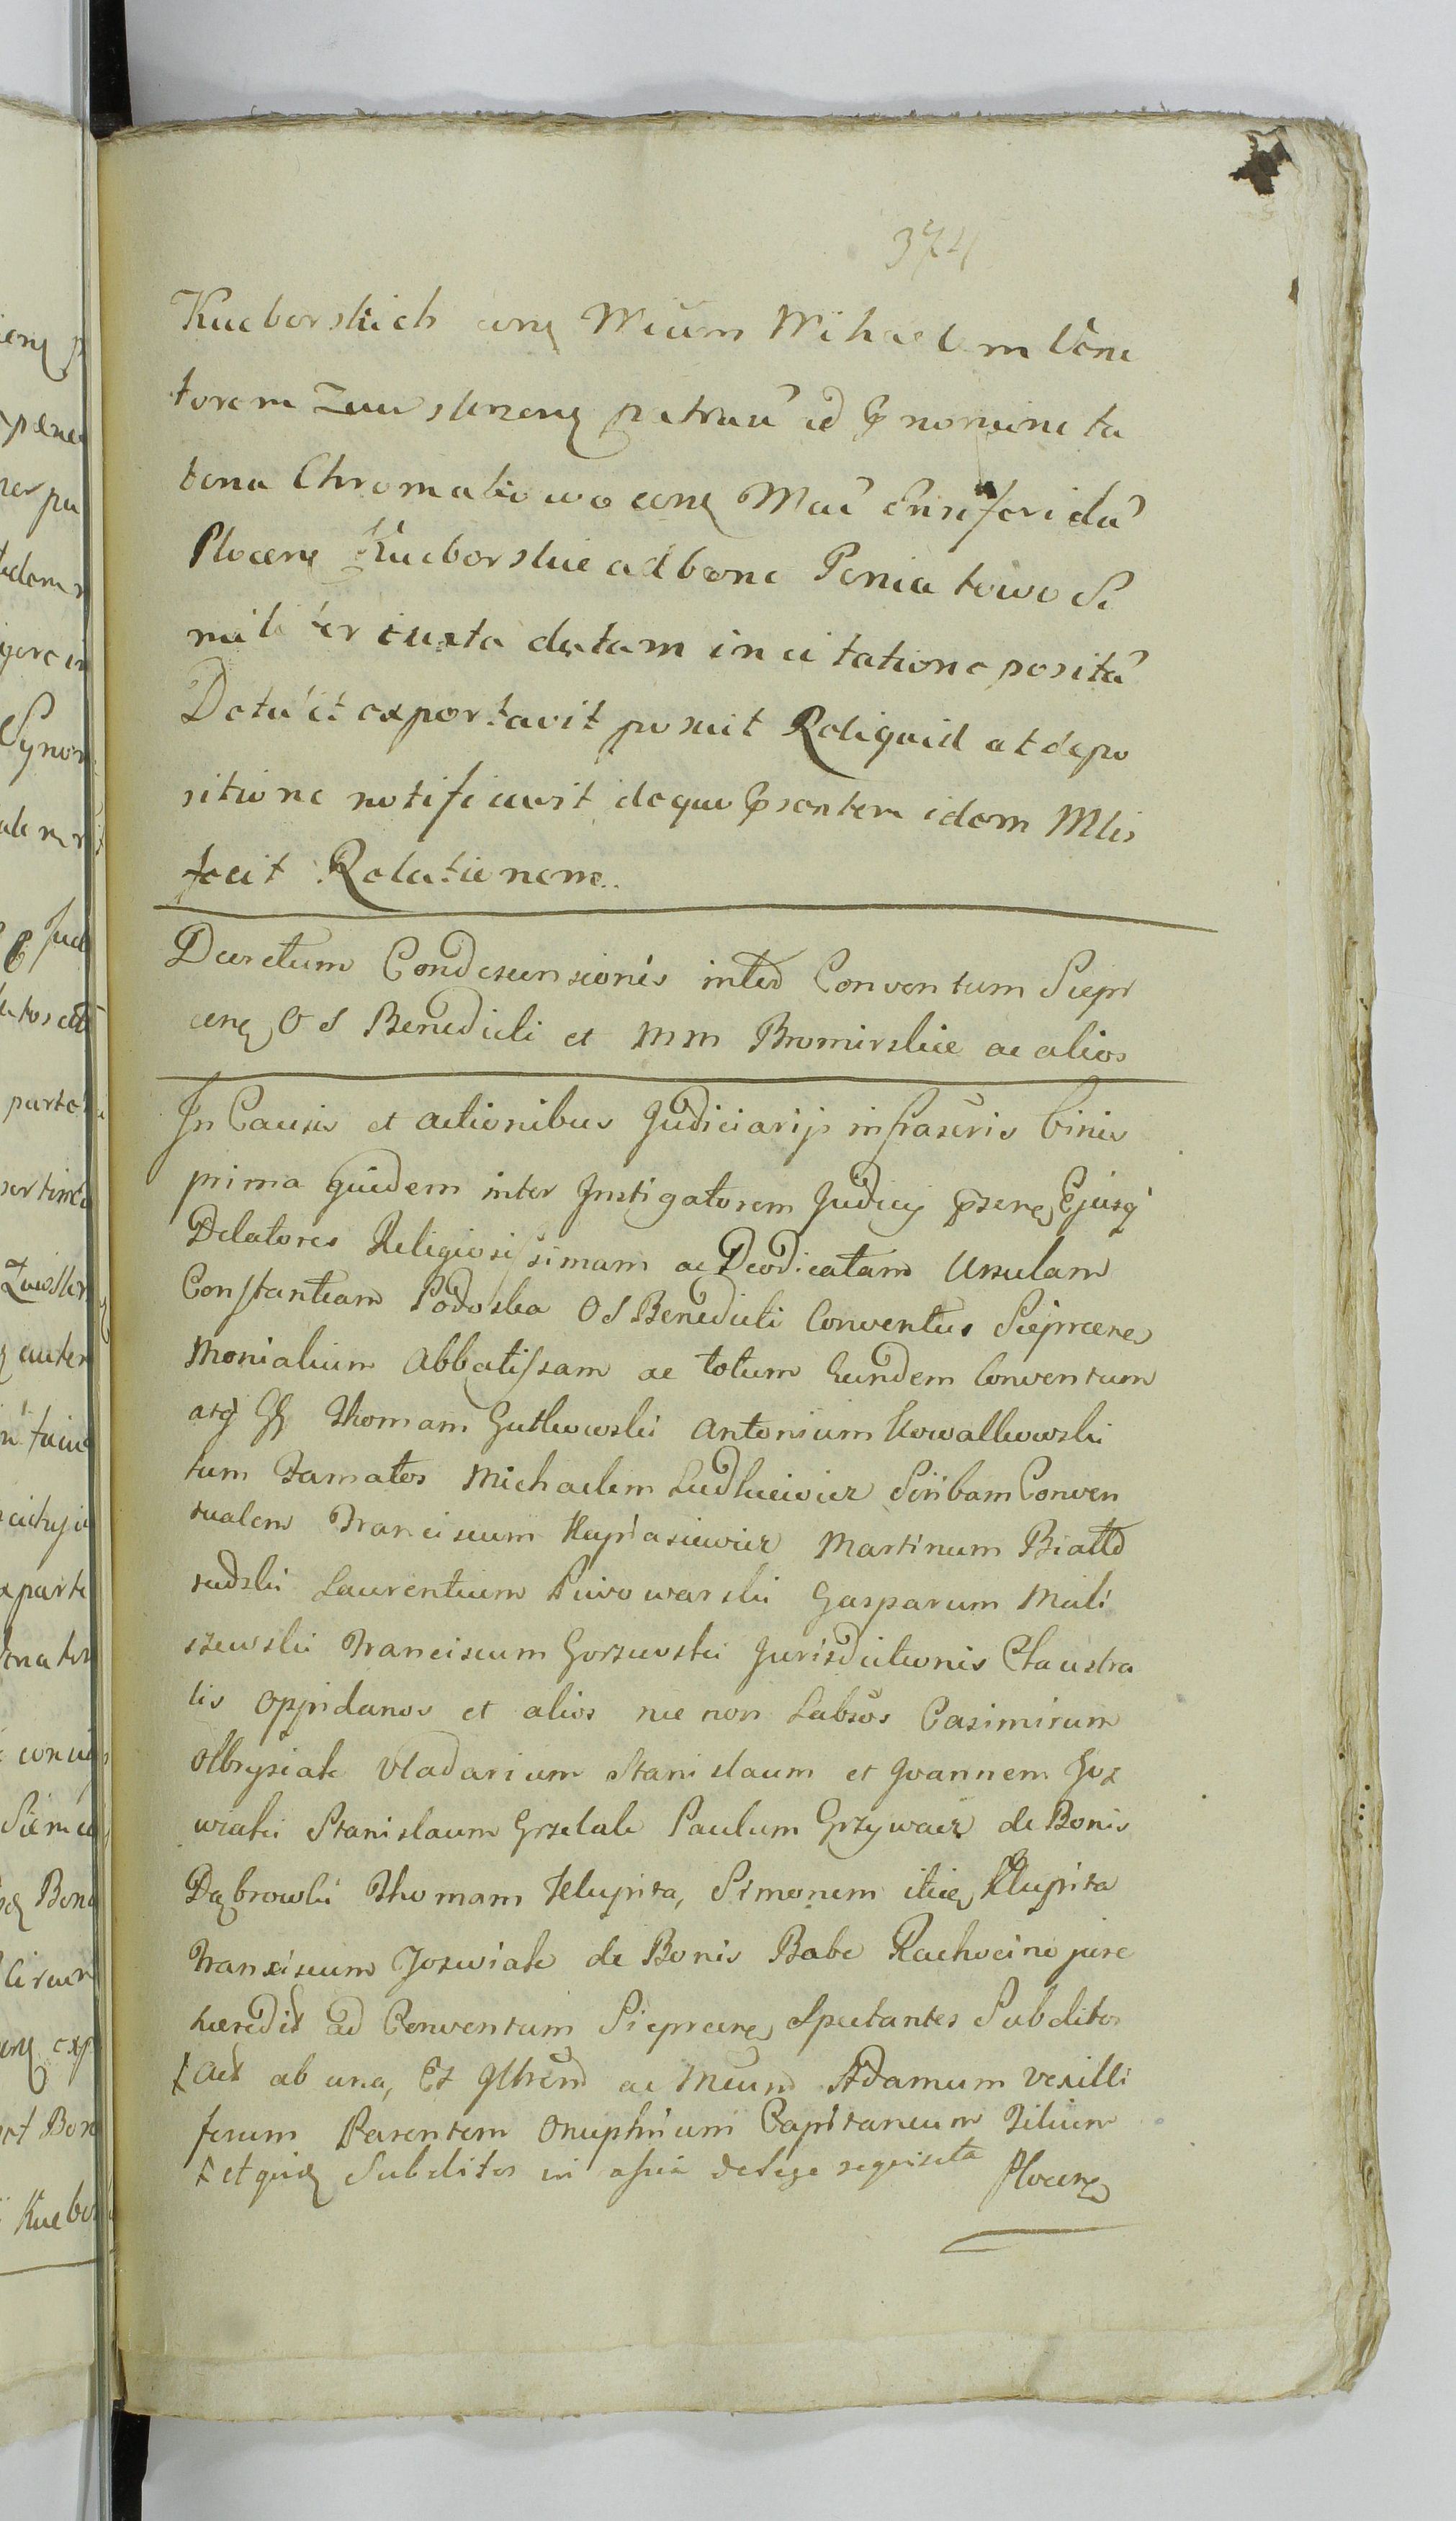 374
Kucborskich conq Mcum Michaelem Vena
torem Zawskrzenq patruū ad Bonomine ta
tena Chromakowo conq Mcū Ensiferidā
Plocenq Kucborskie ad bona Poniatowo Si
militer iuxta datam in citatione positā
Detulit exportavit posuit Reliquid et depo
sitione notificavit deque psentem idem Mlis
fecit Relationem.
Decretum Condescensionis inter Conventum Siepr
cenq O S Benedicti et MM Bromirskie ac alios
In Causis et actionibus Judiciarijs infrascris binis
prima quidem inter Instigatorem Judicij psenq Ejusq
Delatores Religiosissimam ac Deodicatam Ursulam
Constantiam Podoska O S Benedicti Conventus Sieprcenq
Monialium Abbatissam ac totum Eundem Conventum
atq GG Thomam Gutkowski Antonium Kowalkowski
tum Famatos Michaelem Ludkiewicz Scribam Conven
tualem Franciscum Kapiasiewicz Martinum Biało
rudzki Laurentium Piwowarski Gasparum Mali
szewski Franciscum Gorzewski Jurisdictionis Claustra
lis Oppidanos et alios nec non Labsos Casimirum
Olbrysiak Vladarium Stanislaum et Joannem Joz
wiaki Stanislaum Grzelak Paulum Grzywacz de Bonis
Dąbrowki Thomam Klupita, Simonem itidq Klupita
Franciscum Jozwiak de Bonis Babe Rachocino jure
haeredit ad Conventum Sieprcenq Spectantes Subditos
Act ab una, Et Illrem ac Mcum Adamum Vexilli
ferum Parentem Onuphrium Capitaneum Filium
et quidq Subditos in assia de lege requisita Plocenq